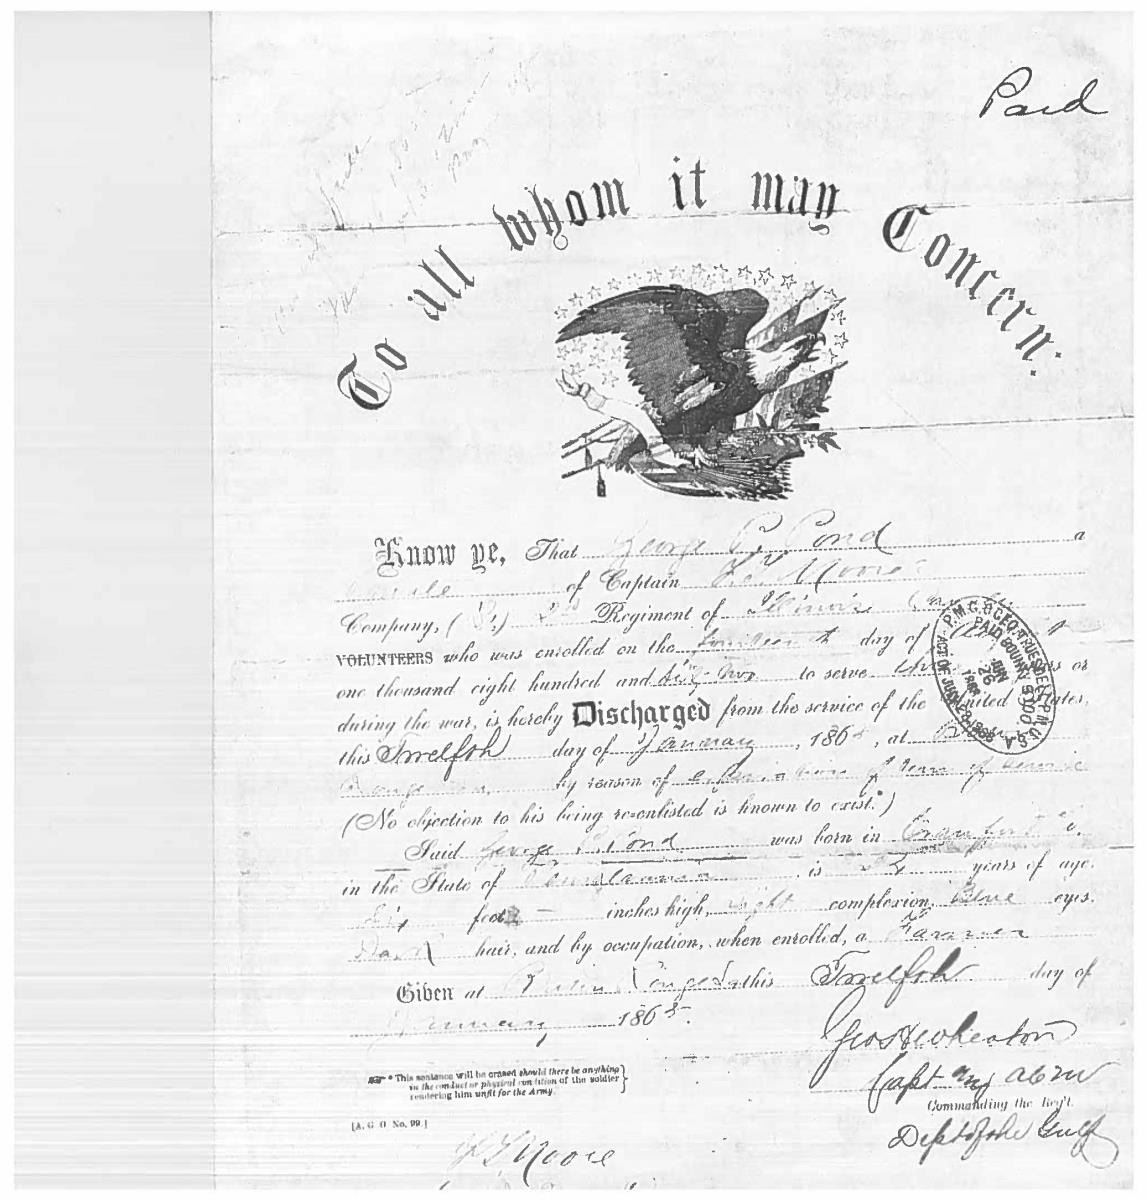 Paid
To all whom it may Concern:
Know ye, That George P. Pond a
of Captain Moore
Company, ( B, ) 2nd Regiment of Illinois Cavalry
VOLUNTEERS who was enrolled on the fourteenth day of
one thousand eight hundred and to serve years or
during the war, is hereby Discharged from the service of the United States,
this Twelfth day of January, 1865, at Baton
Rouge La, by reason of expiration of term of service
(No objection to his being re-enlisted is known to exist.*)
Said George P. Pond was born in Crawford Co.
in the State of Pennsylvania, is years of age,
Six feet - inches high, light complexion, Blue eyes,
Dark hair, and by occupation, when enrolled, a Farmer
Given at Baton Rouge La this Twelfth day of
January 1865.
P.M.G.O. GEO. TRUESDELL P.M. U.S.A.
PAID BOUNTY $100,
JUN 26
ACT OF JULY 28, 1866
Geo S Wheaton
Capt
* This sentence will be erased should there be anything
in the conduct or physical condition of the soldier
rendering him unfit for the Army.
Commanding the Reg't.
[A. G. O. No. 99.]
Dept of the Gulf
Moore